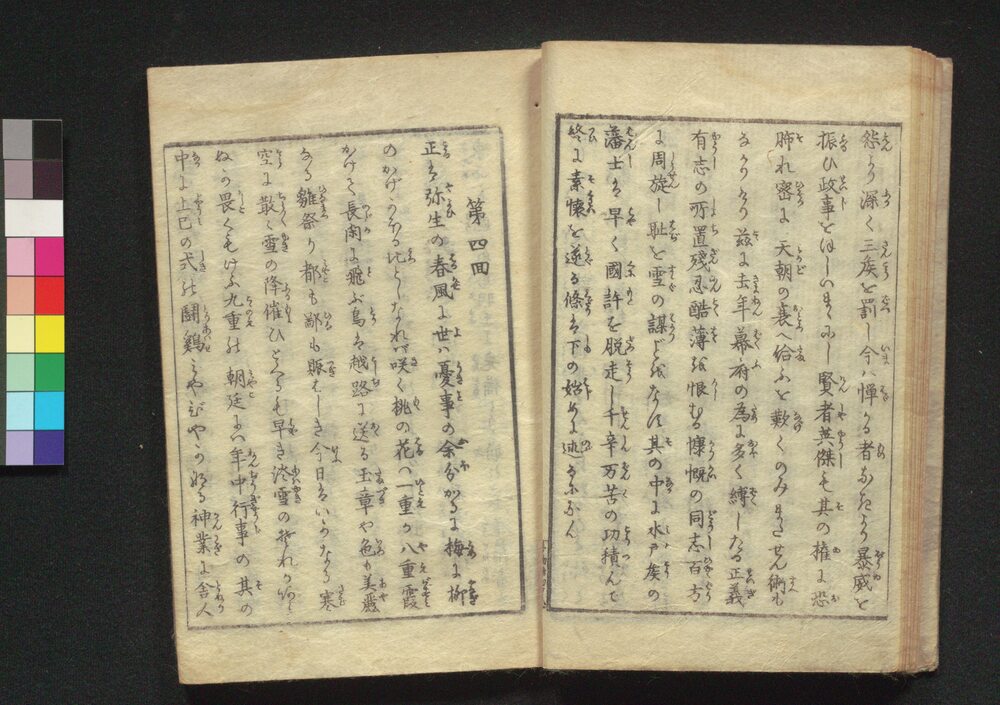 怨より深く三矦を罰し今ハ憚る者なきより暴威を
振ひ政事をほしいまゝにし賢者英傑も其の権に恐
怖れ密に天朝の衰へ給ふを歎くのみまたせん術も
なかりけり茲に去年幕府の為に多く縛したる正義
有志の所置残忍酷薄を恨むる慷慨の同志百方
に周旋し耻を雪の謀ごとをなす其の中に水戸矦の
藩士は早く國許を脱走し千辛万苦の功積んで
終に素懐を遂る條は下の始めに述るならん
第四回
正は弥生の春風に世ハ憂事の余分かるに梅に柳
のかげかへる比としなれバ咲く桃の花ハ一重か八重霞
かけて長閑に飛ぶ鳥は越路に送る玉章や色も美麗
なる雛祭り都も鄙も賑わしき今日はいかなる寒
空に散く雪の降催ひ
も早き淡雪の
ぬか畏くもけふ九重の朝廷にハ年中行事の其の
中に上巳の式の鬪鷄
神業に舎人